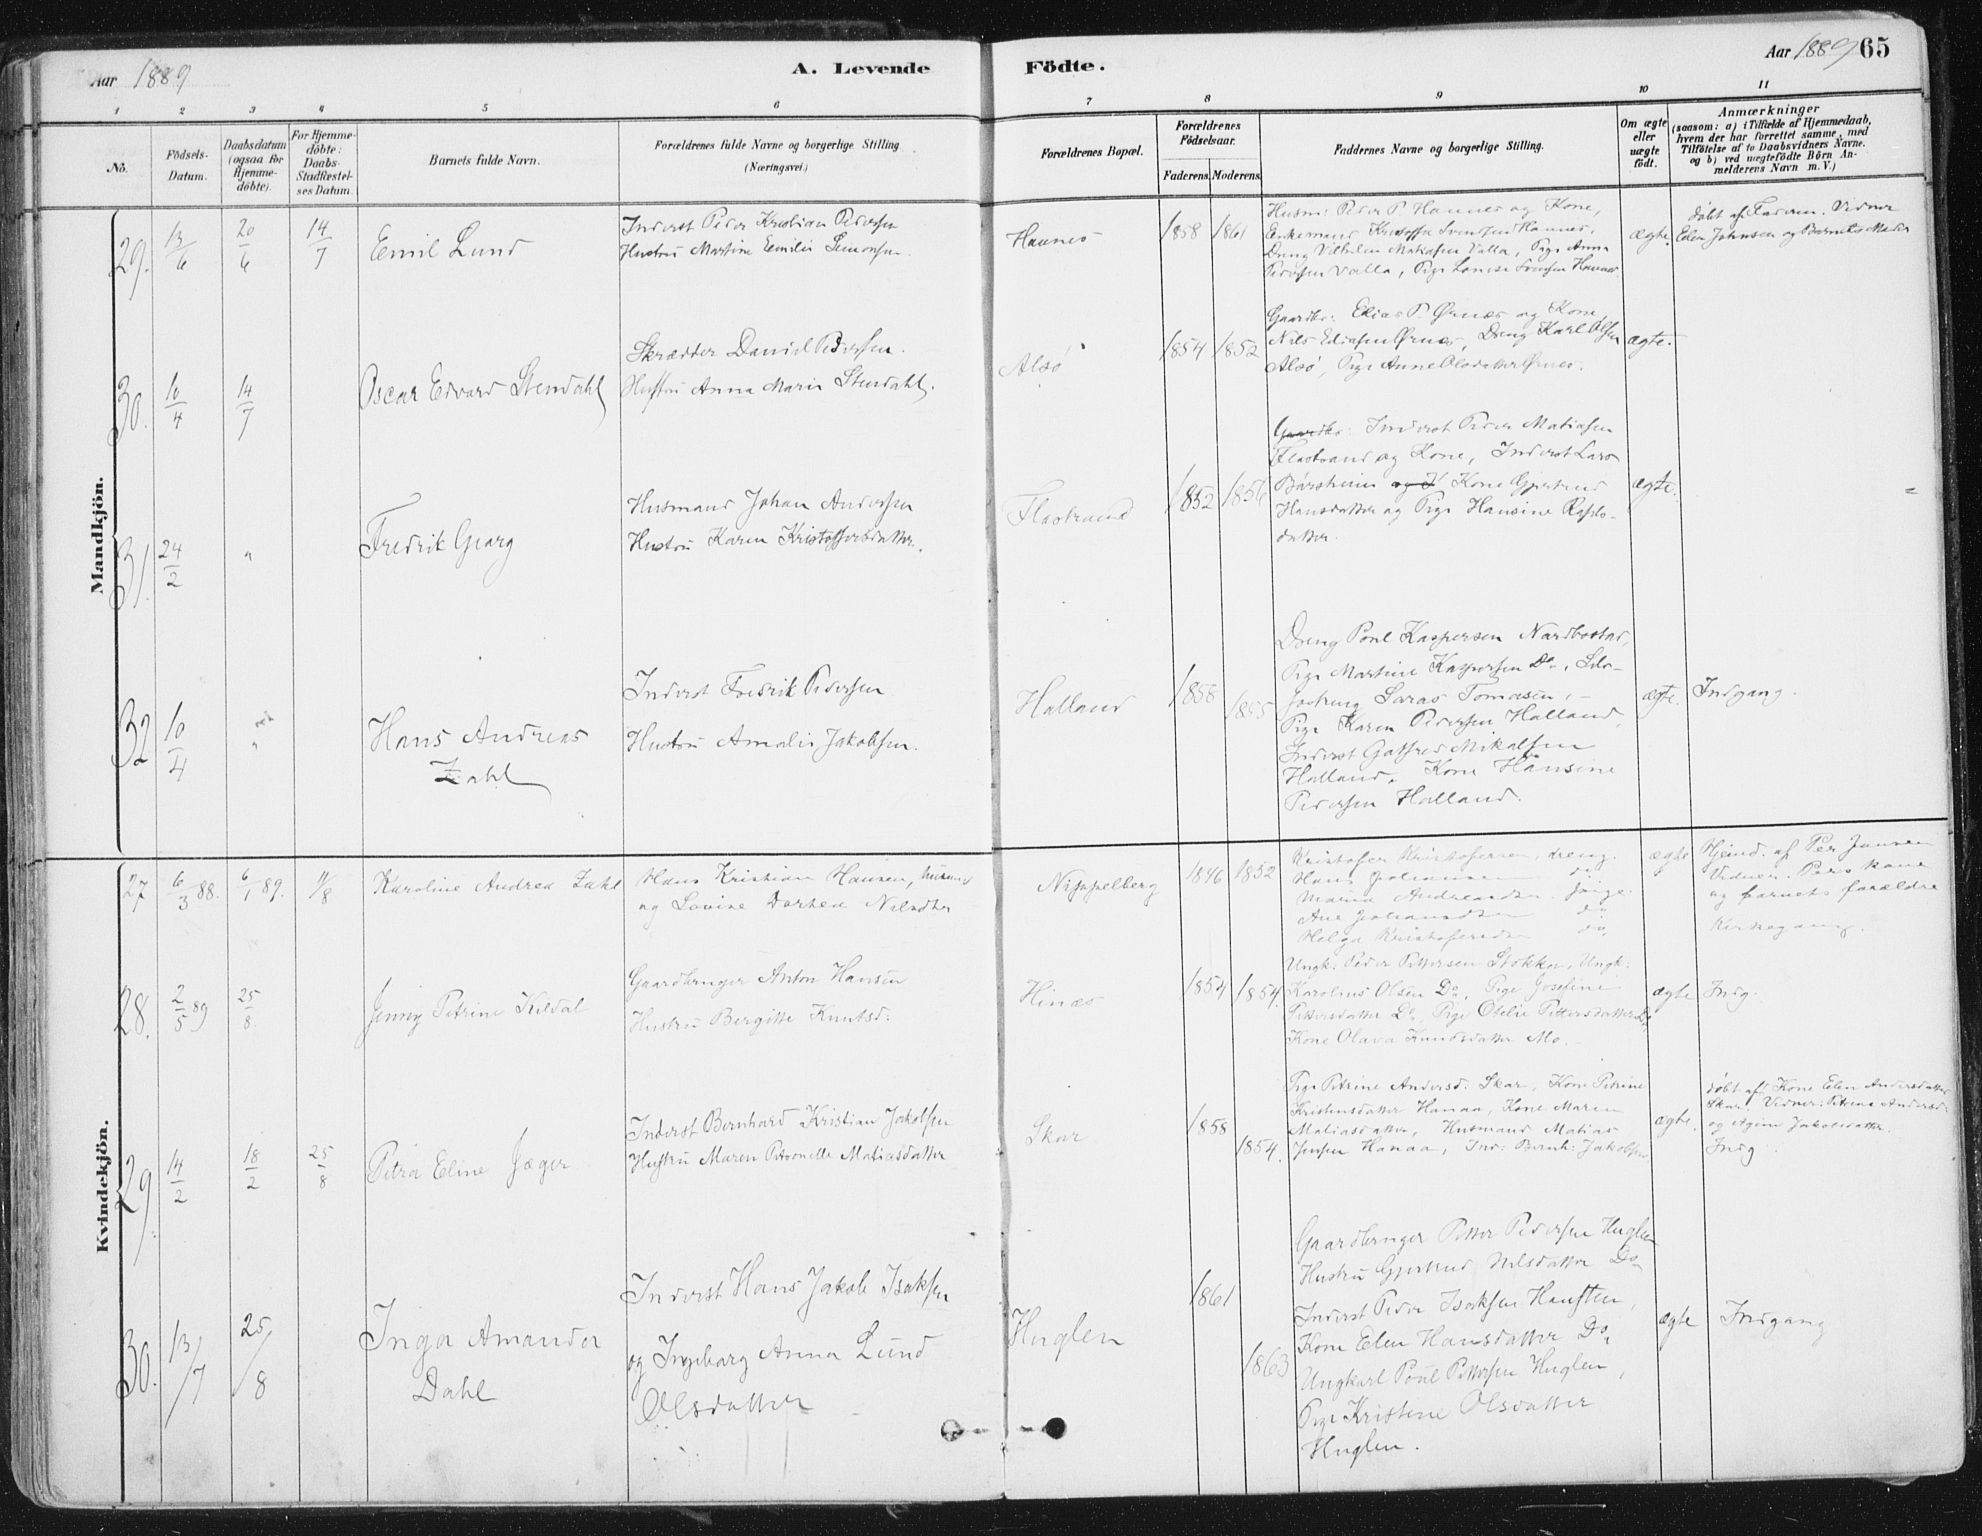 Aar 1889
A. Levende
Födte.
Aar 1889 65
1 2 3 4 5 6 7 8 9 10 11
No.
Födsels-
Datum.
Daabsdatum
(ogsaa for
Hjemme-
döbte).
For Hjemme-
döbte:
Daabs-
Stadfæstel-
ses Datum.
Barnets fulde Navn.
Forældrenes fulde Navne og borgerlige Stilling
(Næringsvei.)
Forældrenes Bopæl.
Forældrenes
Födselsaar.
Faderens. Moderens.
Faddernes Navne og borgerlige Stilling.
Om ægte
eller
uægte
födt.
Anmærkninger
(saasom: a) i Tilfælde af Hjemmedaab,
hvem der har forrettet samme, med
Tilföielse af to Daabsvidners Navne.
og b) ved uægtefödte Börn An-
melderens Navn m. V.)
Mandkjön.
29. 13/6 20/6 14/7
Emil Lund
Inderst Peder Kristian Pedersen
Hustru Martine Emilie Simonsen.
Havnes
1858 1861
Husm: Peder P. Havnes og Kone,
Enkemand Kristoffer Svendsen Havnes,
Dreng Vilhelm Matiasen Valla, Pige Anna
Pedersen Valla, Pige Lovise Svendsen Havnes.
ægte.
döbt af Faderen. Vidner
Elen Johnsen og Barnets Moder
30. 10/4 14/7
Oscar Edvard Stendahl
Skrædder Daniel Pedersen.
Hustru Anna Marie Stendahl.
Alsö
1854 1852
Gaardbr: Elias P. Ørnes og Kone,
Nils Eliasen Ørnes, Dreng Karl Olsen
Alsö, Pige Anne Olsdatter Ørnes.
ægte.
31. 24/2 "
Fredrik Georg
Husmand Johan Andersen
Hustru Karen Kristoffersdatter.
Flostrand
1852 1856
Gaardbr: Inderst Peder Matiasen
Flostrand og Kone, Inderst Lars
og Kone Gjertrud
Hansdatter og Pige Hansine
datter.
ægte.
32 10/4 "
Hans Andreas
Zahl
Inderst Fredrik Pedersen
Hustru Amalie Jakobsen.
Halland
1858 1855
Dreng Poul Kaspersen Nordbostad,
Pige Martine Kaspersen Do,
Tomasen,
Pige Karen Pedersen Halland,
Inderst Gotfred Mikalsen
Halland, Kone Hansine
Pedersen Halland.
ægte.
Indgang.
Kvindekjön.
27 6/3 88. 6/1 89. 11/8
Karoline Andrea Zahl
Hans Kristian Hansen, husmd
og Lovise Dorthea Nilsdtr
Nippelberg
1846 1852
Kristoffer Kristofersen, dreng.
Hans Johansen do
Maria Andreasdtr. pige.
Ane Johansdtr do
Helga Kristofersdtr do.
ægte
Hjemd. af Per Jansen
Vidner. Pers kone
og barnets forældre
Kirkegang.
28. 2/5 89 25/8.
Jenny Petrine Kildal
Gaardbruger Anton Hansen
Hustru Bergitte Knutsd:
Hinæs
1854 1854.
Ungk: Peder Pettersen Stokka, Ungk:
Karolius Olsen Do, Pige Josefine
Pettersdatter Do, Pige Otelie Pettersdatter Do,
Kone Olava Knudsdatter Mo.
ægte
Indg.
29. 14/2 18/2 25/8
Petra Eline Jæger
Inderst Bernhard Kristian Jakobsen
Hustru Maren Petronelle Matiasdatter
Skar
1858 1854.
Pige Petrine Andersd: Skar, Kone Petrine
Kristensdatter Hanaa, Kone Maren
Matiasdatter, Husmand Matias
Jensen Hanaa, Ind: Bernh: Jakobsen
ægte.
döbt af Kone Elen Andersdatter
Skar. Vidner: Petrine Andersd:
og Jakobsdatter.
Indg.
30. 13/7 25/8
Inga Amanda
Dahl
Inderst Hans Jakob Isaksen
og Ingeborg Anna Lund
Olsdatter
Huglen
1861 1863
Gaardbruger Petter Pedersen Huglen
Hustru Gjertrud Nilsdatter Do
Inderst Peder Isaksen
Kone Elen Hansdatter Do,
Ungkarl Poul Pettersen Huglen,
Pige Kristine Olsdatter
Huglen.
ægte
Indgang